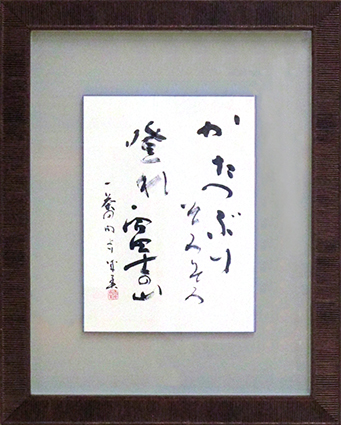 かたつぶり
そろそろ
登れ富士の山
一茶の句